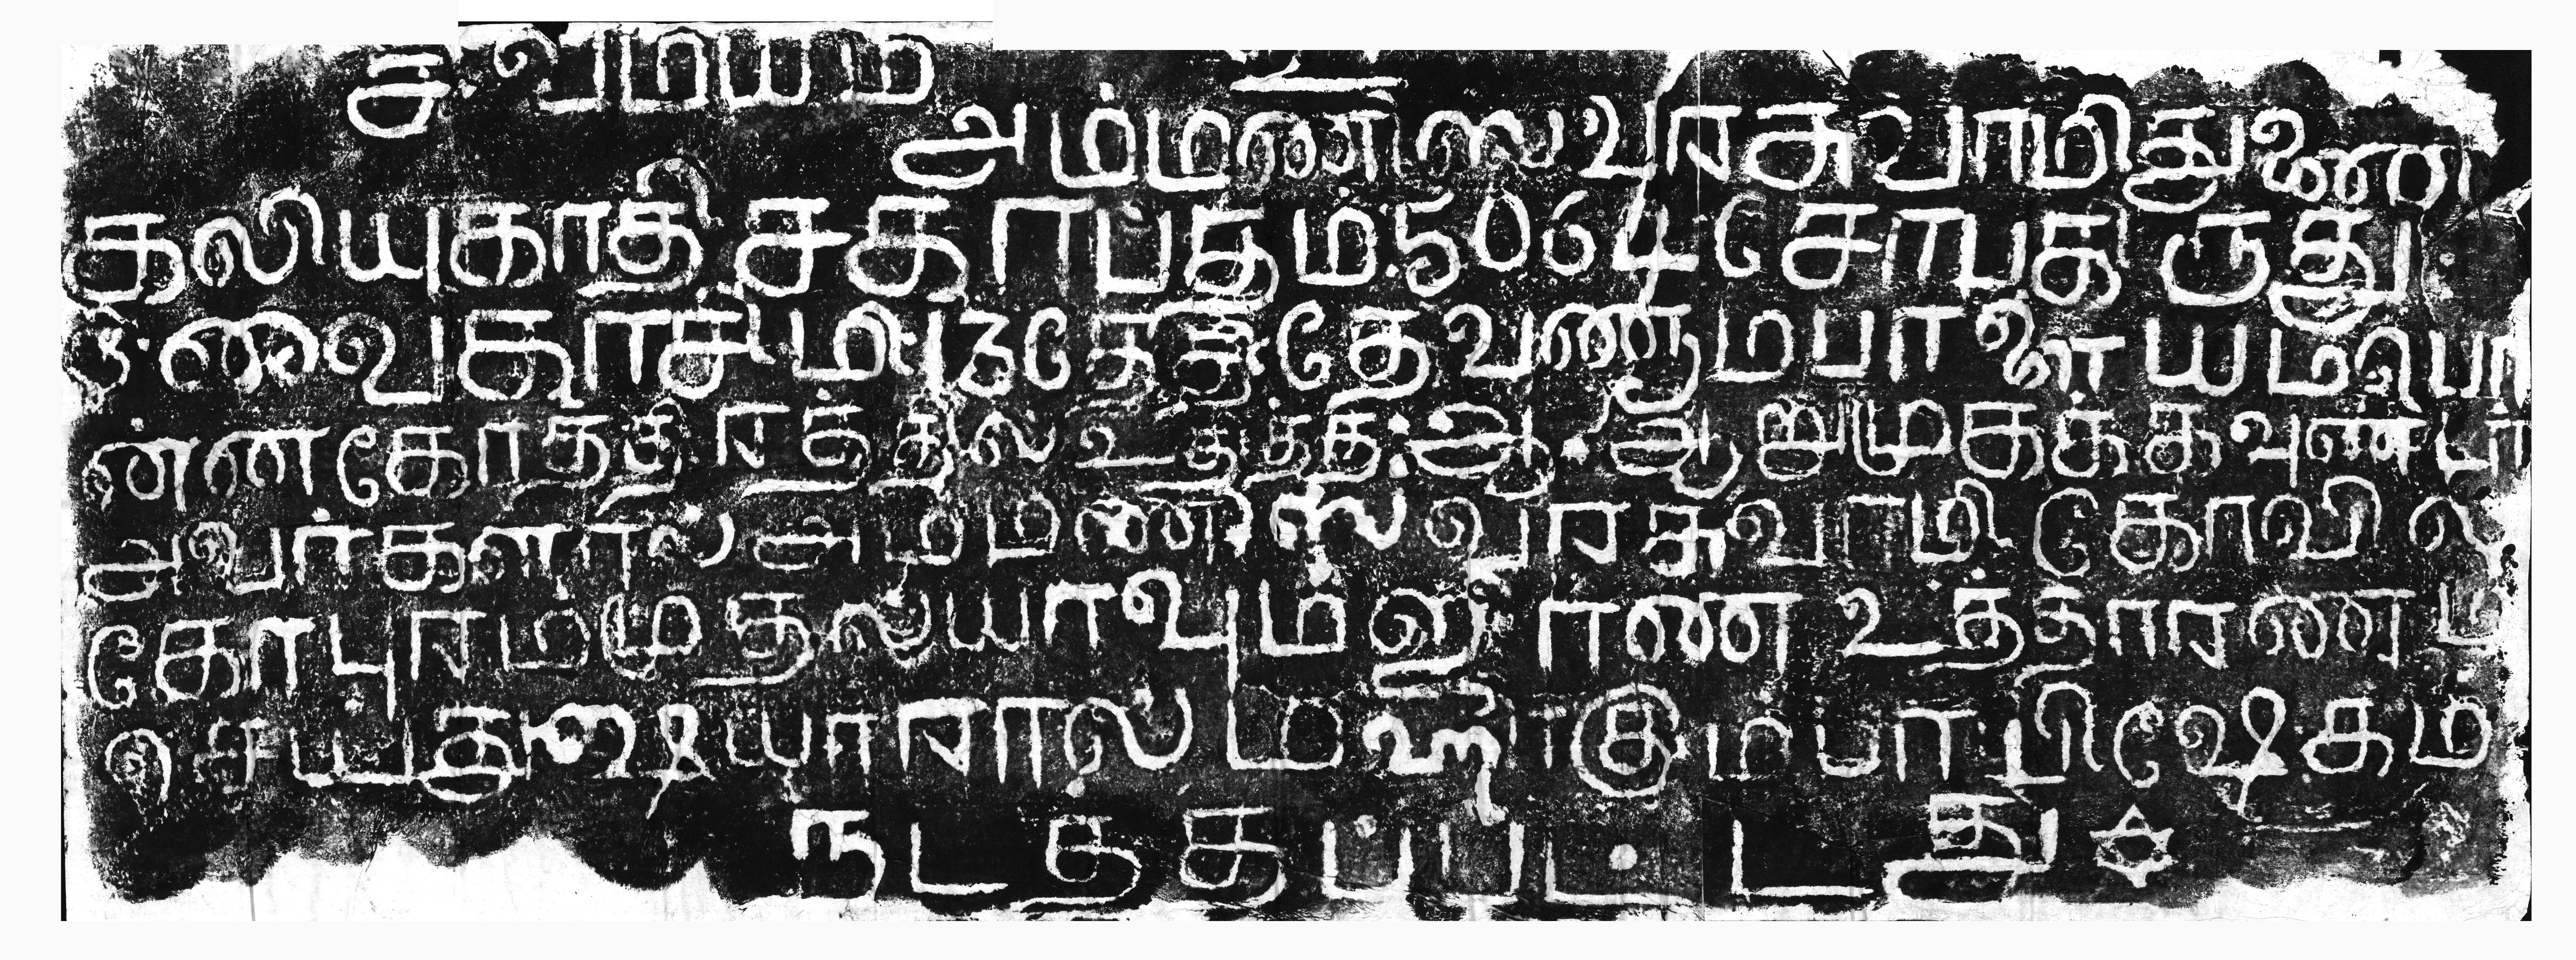 சிவமயம் உ
அம்மணீஸ்வரசுவாமிதுணை
கலியுகாதி சகாபதம் 5064 சோபகிருது
ளு வைகாசி மீ 13 தேதி தேவணாம்பாளையம் பொ
ன்னகோத்திரத்தில் உதித்த ஆ. ஆறுமுகக்கவுண்டர்
அவர்களால் அம்மணீஸ்வரசுவாமி கோவில்
கோபுரம் முதல்யாவும் ஜீரண உத்தாரணம்
செய்து க்ஷியாரால் மஹா கும்பாபிஷேகம்
நடத்தப்பட்டது